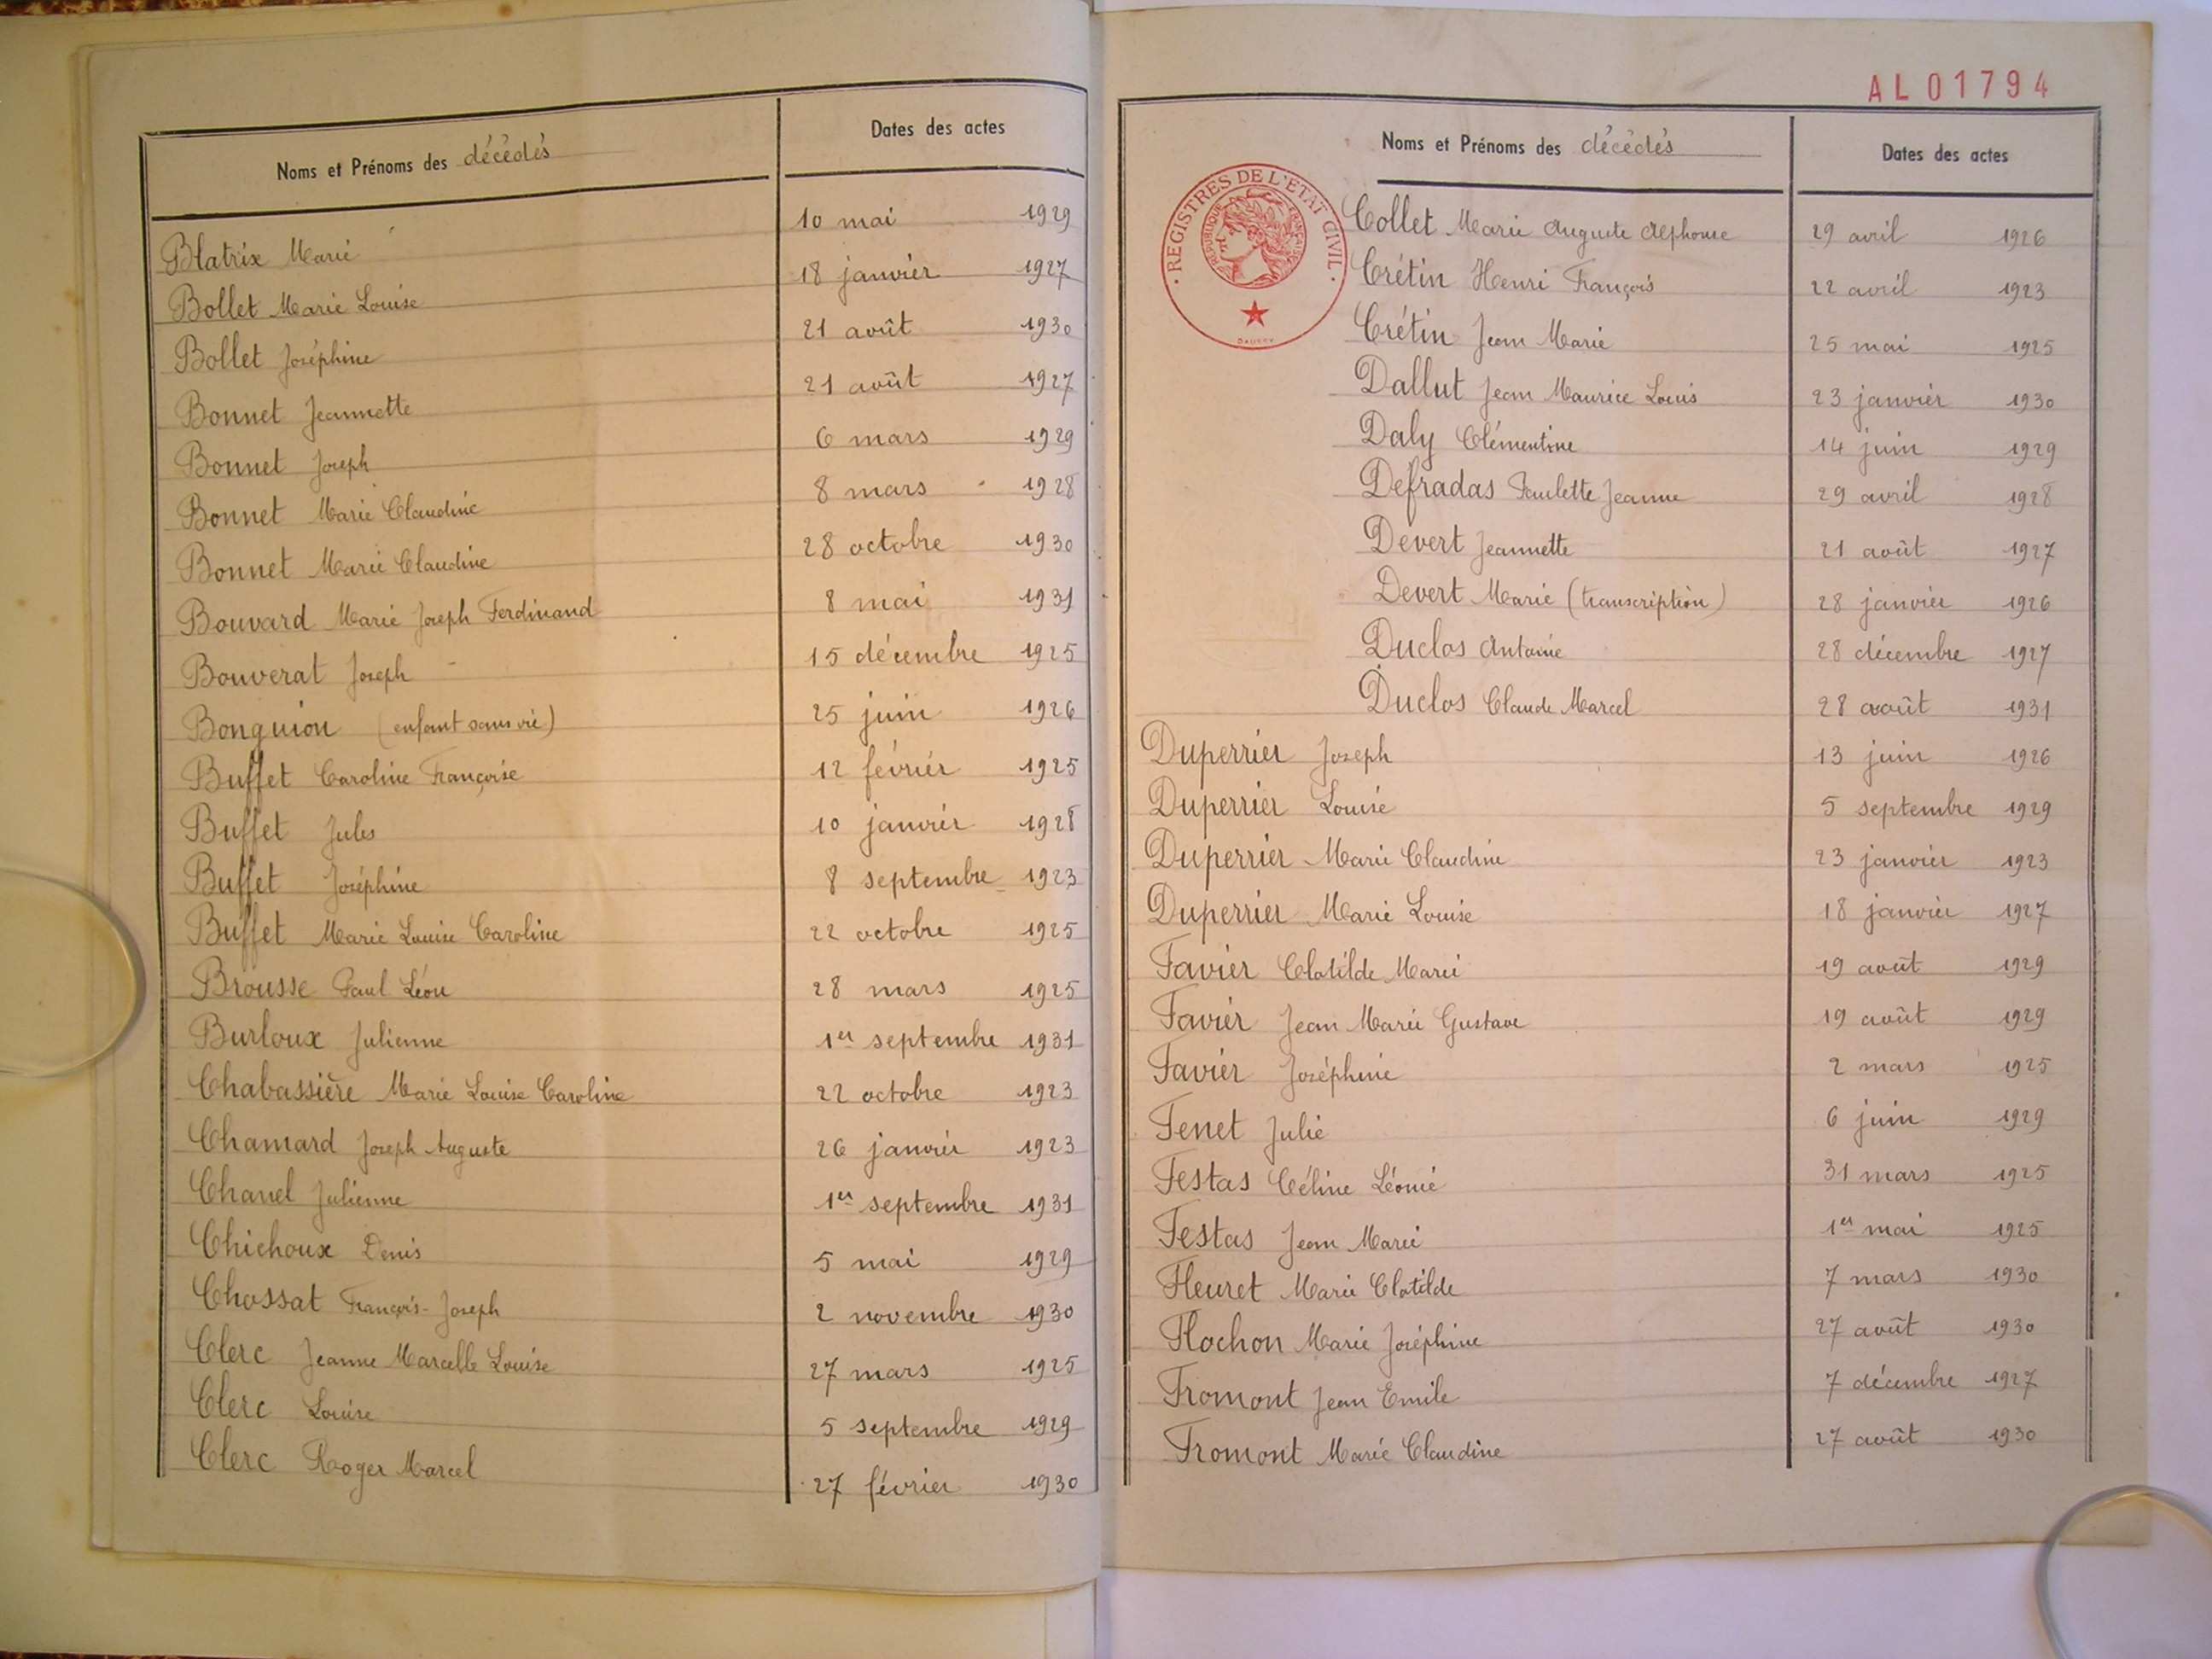 Noms et Prénoms des décédés Dates des actes
Blatrix Marie 10 mai 1929
Bollet Marie Louise 18 janvier 1927
Bollet Joséphine 21 août 1930
Bonnet Jeannette 21 août 1927
Bonnet Joseph 6 mars 1929
Bonnet Marie Claudine 8 mars 1928
Bonnet Marie Claudine 28 octobre 1930
Bouvard Marie Joseph Ferdinand 8 mai 1931
Bouverat Joseph 15 décembre 1925
Bonguion (enfant sans vie) 25 juin 1926
Buffet Caroline Françoise 12 février 1925
Buffet Jules 10 janvier 1928
Buffet Joséphine 8 septembre 1923
Buffet Marie Louise Caroline 22 octobre 1925
Brousse Paul Léon 28 mars 1925
Burloux Julienne 1er septembre 1931
Chabassière Marie Louise Caroline 22 octobre 1923
Chamard Joseph Auguste 26 janvier 1923
Chanel Julienne 1er septembre 1931
Chichoux Denis 5 mai 1929
Chossat François-Joseph 2 novembre 1930
Clerc Jeanne Marcelle Louise 27 mars 1925
Clerc Louise 5 septembre 1929
Clerc Roger Marcel 27 février 1930
AL01794
Noms et Prénoms des décédés Dates des actes
REGISTRES DE L'ETAT CIVIL
REPUBLIQUE FRANÇAISE
Collet Marie Auguste Alphonse 29 avril 1926
Crétin Henri François 22 avril 1923
Crétin Jean Marie 25 mai 1925
Dallut Jean Maurice Louis 23 janvier 1930
Daly Clémentine 14 juin 1929
Defradas Paulette Jeanne 29 avril 1928
Devert Jeannette 21 août 1927
Devert Marie (transcription) 28 janvier 1926
Duclos Antoine 28 décembre 1927
Duclos Claude Marcel 28 août 1931
Duperrier Joseph 13 juin 1926
Duperrier Louise 5 septembre 1929
Duperrier Marie Claudine 23 janvier 1923
Duperrier Marie Louise 18 janvier 1927
Favier Clotilde Marie 19 août 1929
Favier Jean Marie Gustave 19 août 1929
Favier Joséphine 2 mars 1925
Fenet Julie 6 juin 1929
Festas Céline Léonie 31 mars 1925
Festas Jean Marie 1er mai 1925
Fleuret Marie Clotilde 7 mars 1930
Flochon Marie Joséphine 27 août 1930
Fromont Jean Emile 7 décembre 1927
Fromont Marie Claudine 27 août 1930